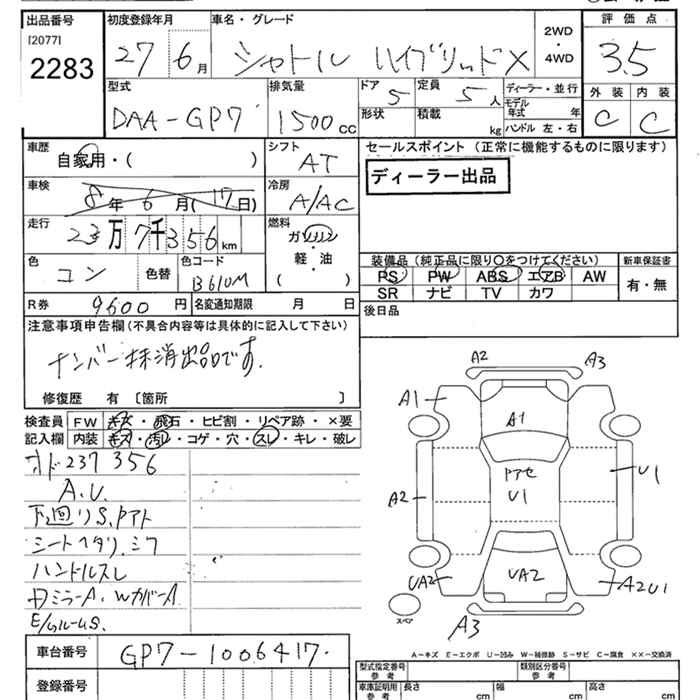 出品番号
[2077]
2283
初度登録年月
27 6月
車名・グレード
シャトル ハイブリッド X
2WD
・
4WD
評価点
3.5
外装 内装
C C
型式
DAA-GP7
排気量
1500cc
ドア
5
定員
5人
形状
積載
kg
ディーラー・並行
モデル年式 年
ハンドル 左・右
車歴
自家用・( )
シフト
AT
セールスポイント(正常に機能するものに限ります)
ディーラー出品
車検
8年 6月(17日)
冷房
A/AC
走行
23万7千356km
燃料
ガソリン
・
軽・油
( )
色
コン
色替
色コード
B610M
装備品(純正品に限り〇をつけてください)
PS PW ABS エアB AW
SR ナビ TV カワ
新車保証書
有・無
R券 9600円
名変通知期限 月 日
後日品
注意事項申告欄(不具合内容等は具体的に記入して下さい)
ナンバー抹消出品です.
修復歴 有 〔箇所 〕
検査員記入欄
FW キズ・飛石・ヒビ割・リペア跡・×要
内装 キズ・汚れ・コゲ・穴・スレ・キレ・破レ
オド237356
A.U.
下廻りS、Pアト
シートヘタリ.シワ
ハンドルスレ
Dミラー A. WカバーA
E/gルームS.
A2
A3
A1
A1
A2
Pアセ
U1
U1
UA2
UA2
A2U1
A3
スペア
A-キズ E-エクボ U-凹み W-補修跡 S-サビ C-腐食 XX-交換済
車台番号
GP7-1006417
登録番号
型式指定番号
参考
類別区分番号
参考
車庫証明用
参考
長さ
cm
幅
cm
高さ
cm